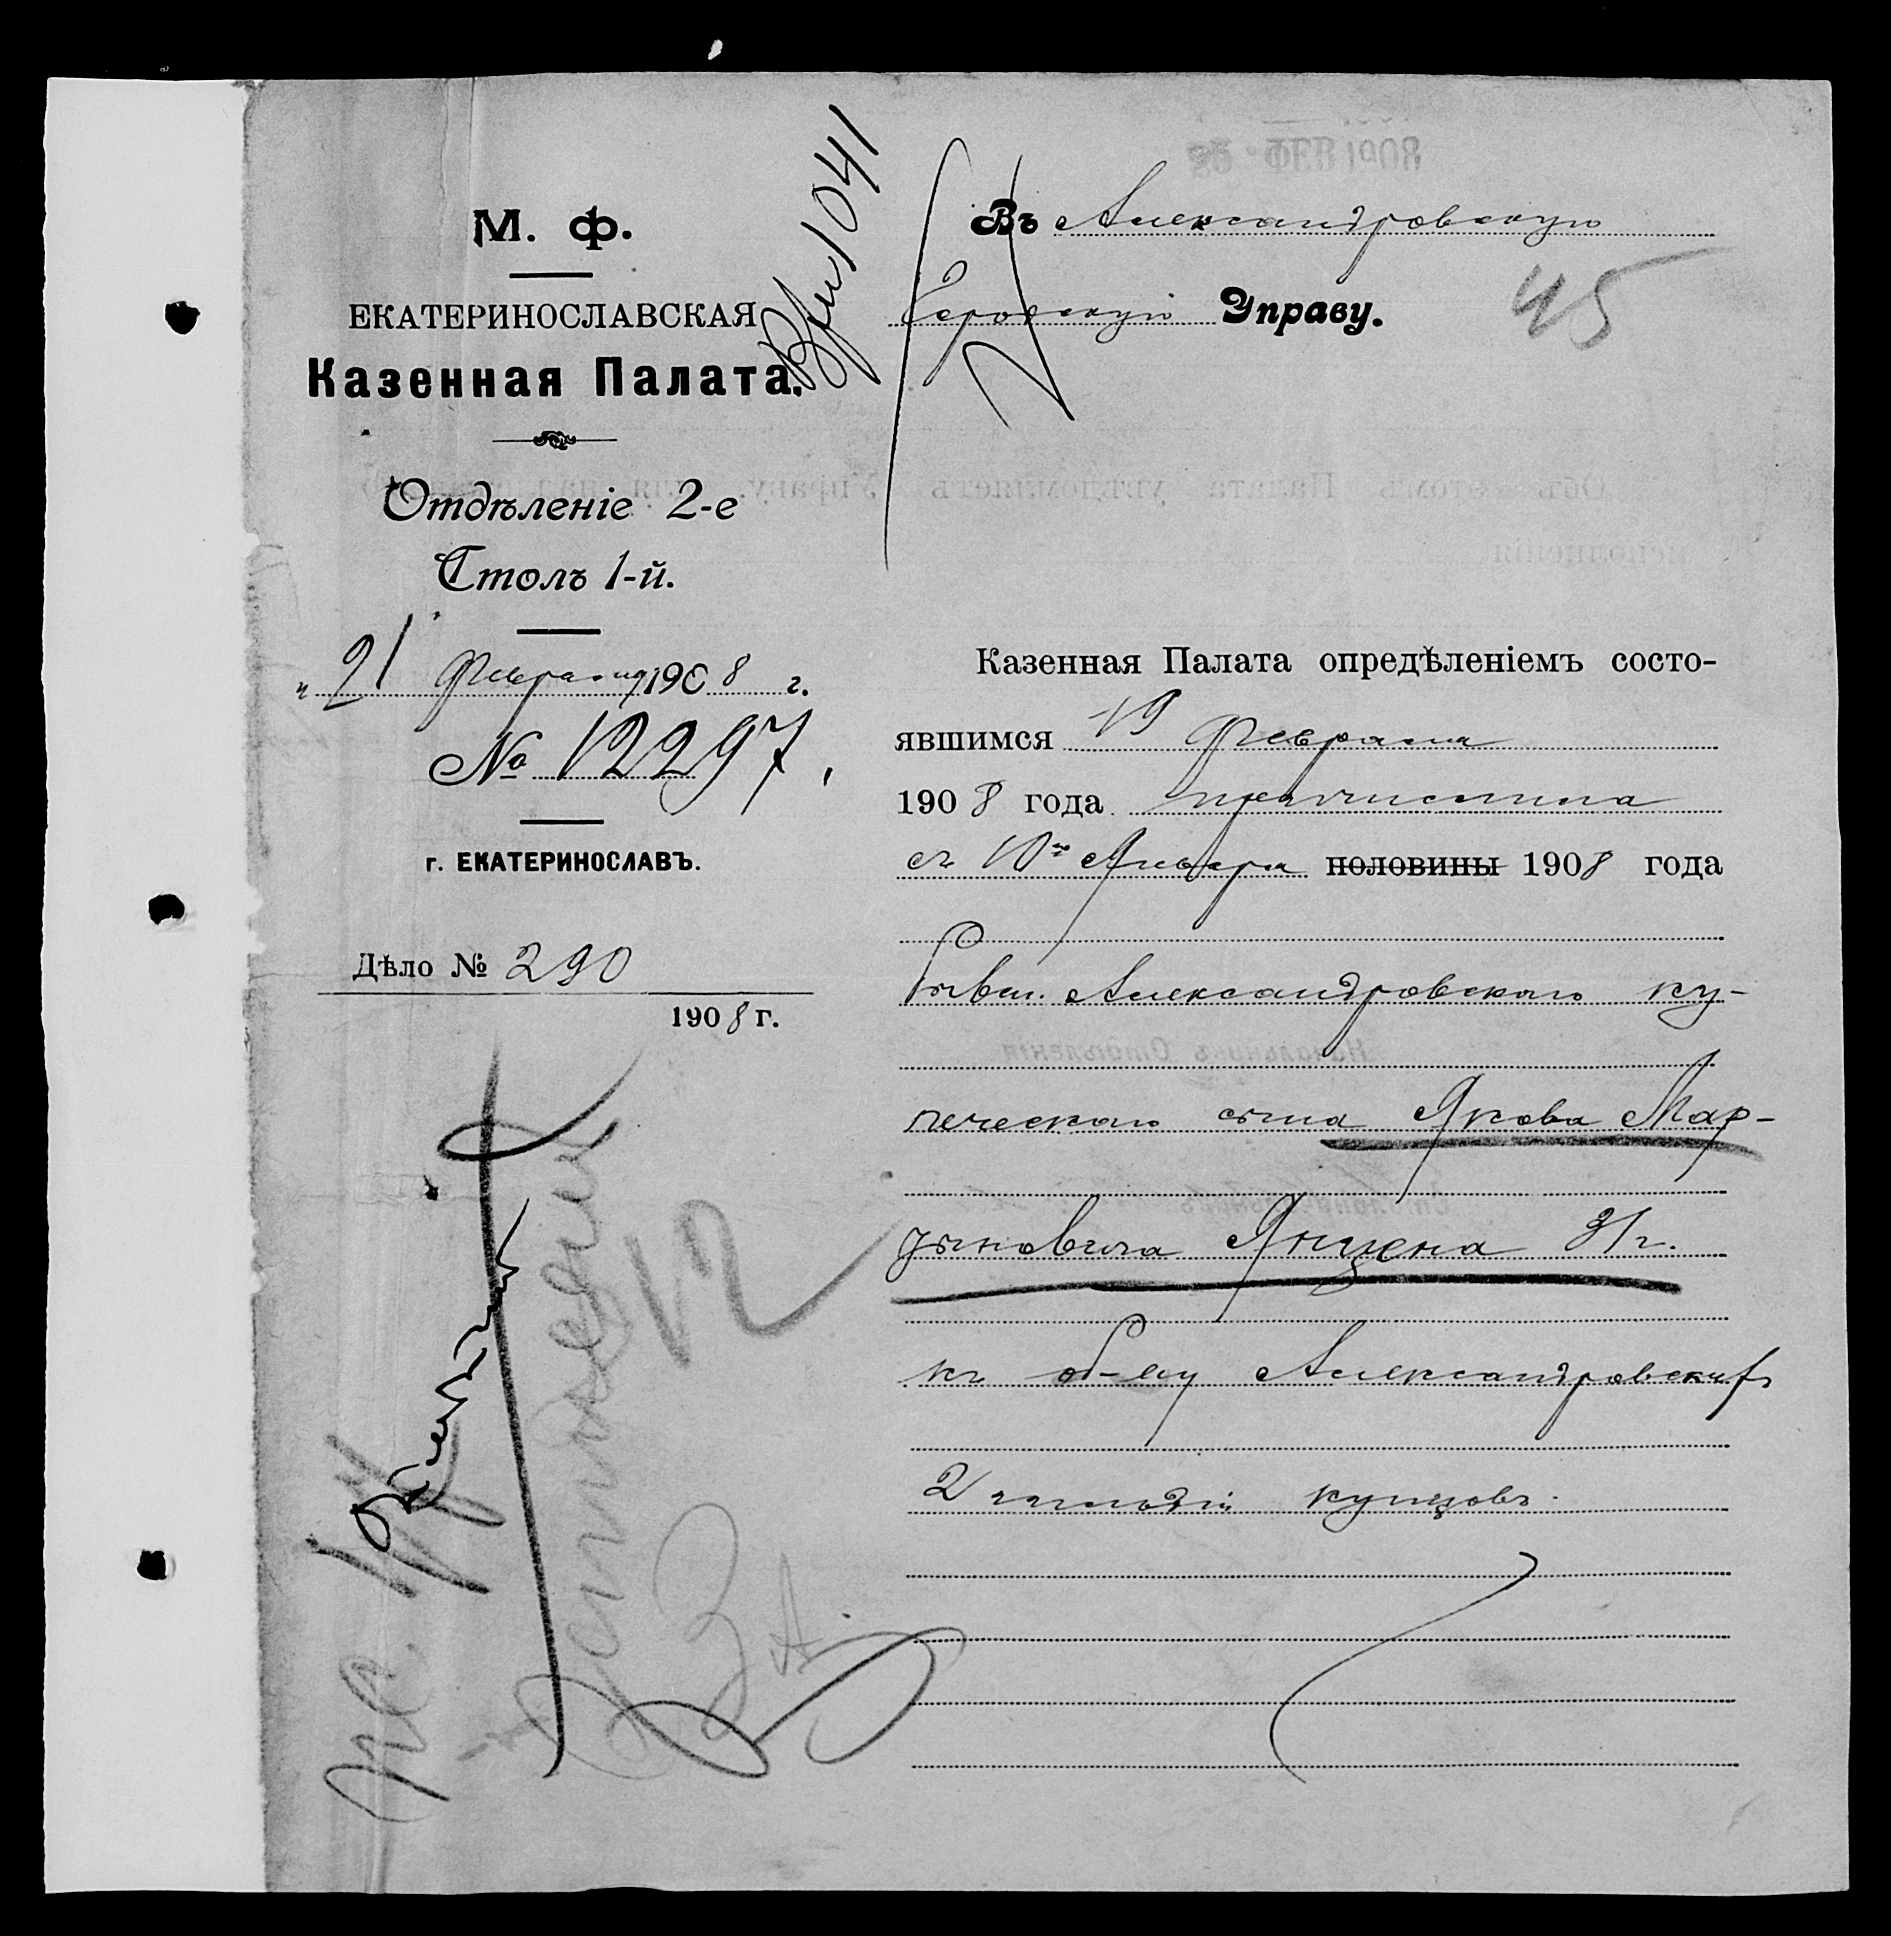 М. Ф.
ЕКАТЕРИНОСЛАВСКАЯ
Казенная Палата.
Отдѣленіе 2-е
Столъ 1-й.
„21 Февраля 1908 г.
№ 12297.
г. ЕКАТЕРИНОСЛАВЪ.
Дѣло № 290
1908 г.
1041
Въ Александровскую
Городскую Управу.
45
Казенная Палата опредѣленіемъ состо-
явшимся 19 Февраля
1908 года причислила
съ 1го Января половины 1908 года
бывш. Александровскаго ку-
печескаго сына Якова Мар-
тыновича Янцена 31 г.
къ об-ву Александровскихъ
2 гильдіи купцовъ.
12